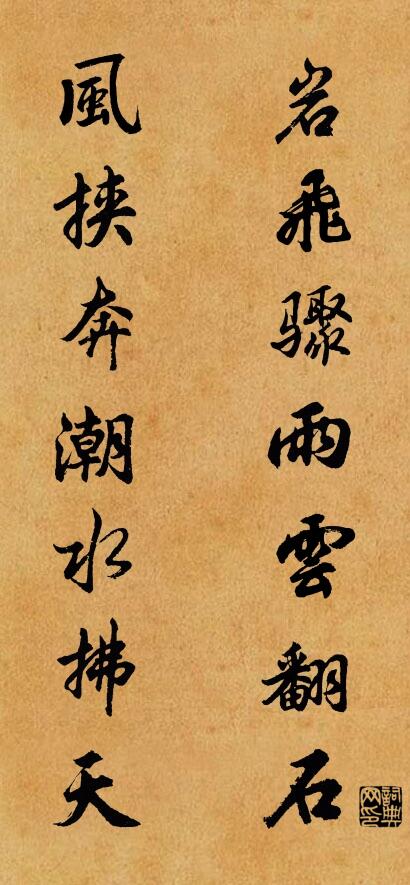 岩飛驟雨雲翻石
風挾奔潮水拂天
詞典網印